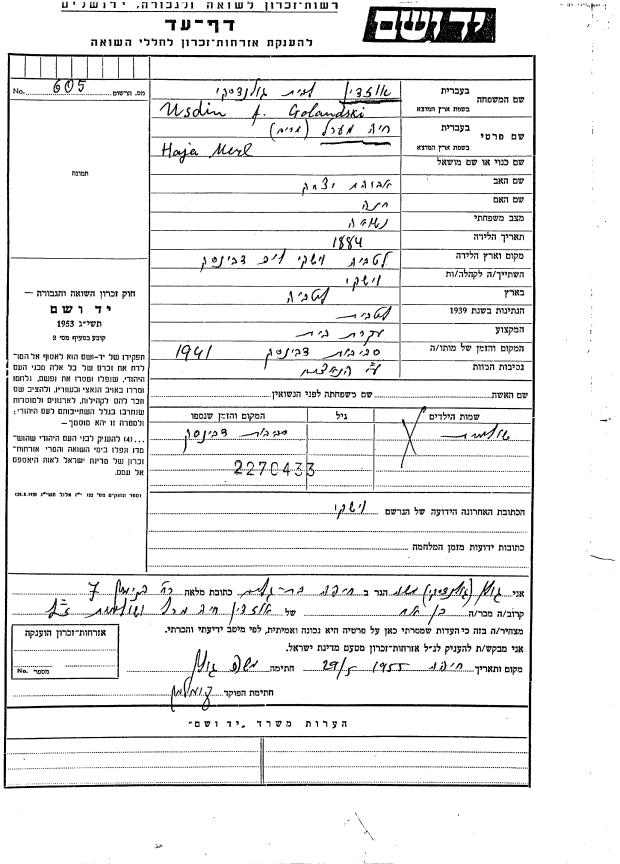 רשות-זכרון לשואה ולגבורה, ירושלים
יד ושם
דף-עד
להענקת אזרחות-זכרון לחללי השואה
No. 605 מס. הרשום
תמונה
חוק זכרון השואה והגבורה –
יד ושם
תשי"ג 1953
קובע בסעיף מס' 2
תפקידו של יד-ושם הוא לאסוף אל המו-
לדת את זכרם של כל אלה מבני העם
היהודי, שנפלו ומסרו את נפשם, נלחמו
ומרדו באויב הנאצי ובעוזריו, ולהציב שם
וזכר להם, לקהילות, לארגונים ולמוסדות
שנחרבו בגלל השתייכותם לעם היהודי;
ולמטרה זו יהא מוסמך –
...(4) להעניק לבני העם היהודי שהוש-
מדו ונפלו בימי השואה והמרי אזרחות-
זכרון של מדינת ישראל לאות היאספם
אל עמם.
שם המשפחה
בעברית אוזדין לבית גולנדסקי
בשפת ארץ המוצא Usdin f. Golandski
שם פרטי
בעברית חיה מערל
בשפת ארץ המוצא Haja Merl
שם כנוי או שם מושאל
שם האב אברהם יצחק
שם האם חנה
מצב משפחתי נשואה
תאריך הלידה 1884
מקום וארץ הלידה לטביה וישקי דבינסק
השתייך/ה לקהלה/ות וישקי
בארץ לטביה
הנתינות בשנת 1939 לטבית
המקצוע עקרת בית
המקום והזמן של מותו/ה סביבות דבינסק 1941
נסיבות המוות ע"י הנאצים
שם האשה, שם משפחתה לפני הנשואין
שמות הילדים גיל המקום והזמן שנספו
שולמית סביבות דבינסק
2270433
הכתובת האחרונה הידועה של הנרשם וישקי
כתובות ידועות מזמן המלחמה
אני גולן (גולנדסקי) משה הגר ב חיפה בת-גלים כתובת מלאה רח' 7
קרוב/ה מכר/ה בן אח של אוזדין חיה מרל ושולמית ז"ל
מצהיר/ה בזה כי העדות שמסרתי כאן על פרטיה היא נכונה ואמיתית, לפי מיטב ידיעתי והכרתי.
אני מבקש/ת להעניק לנ"ל אזרחות-זכרון מטעם מדינת ישראל.
מקום ותאריך חיפה 29/5 1955 חתימה משה גולן
חתימת הפוקד
אזרחות-זכרון הוענקה
No. מספר
הערות משרד "יד ושם"